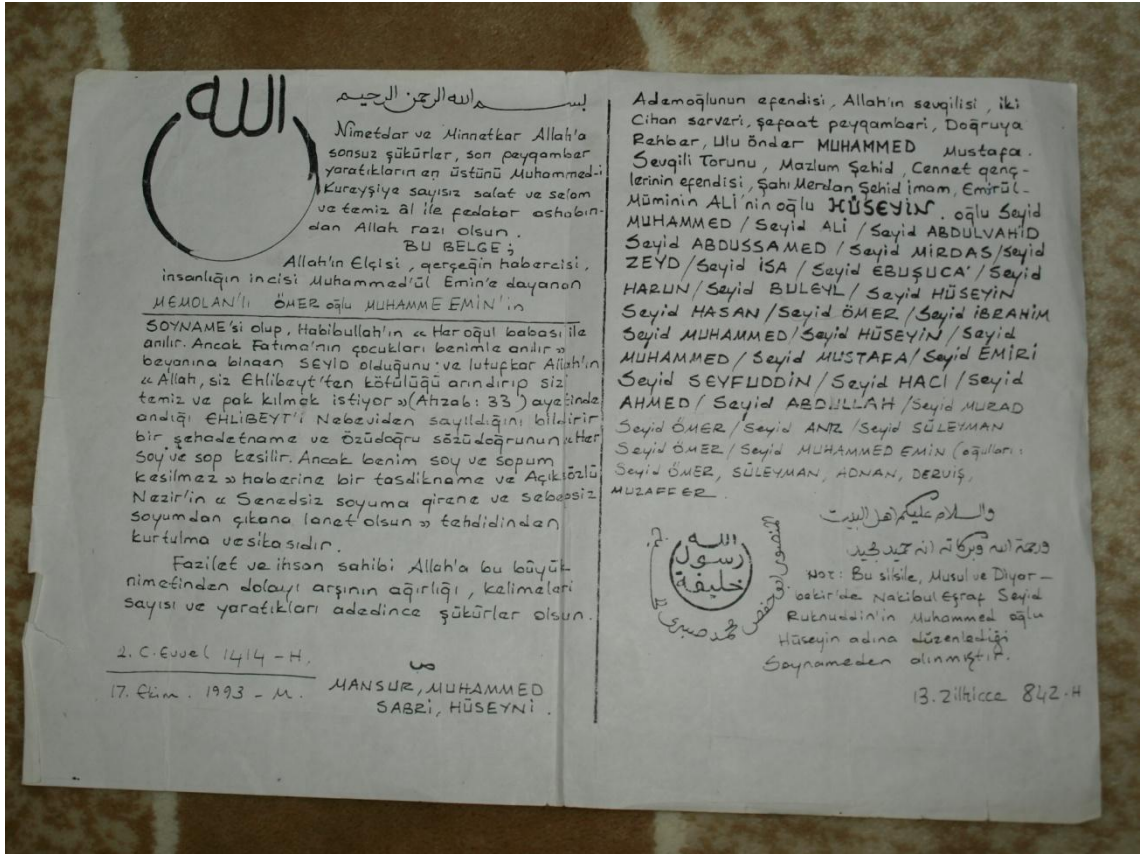 الله
بسم الله الرحمن الرحيم
Nimetdar ve Minnetkar Allah'a
sonsuz şükürler, son peygamber
yaratıkların en üstünü Muhammed-i
Kureyşiye sayısız salat ve selam
ve temiz âl ile fedakar ashabın-
dan Allah razı olsun.
BU BELGE;
Allah'ın Elçisi, gerçeğin habercisi,
insanlığın incisi Muhammed'ül Emin'e dayanan
MEMOLAN'lı ÖMER oğlu MUHAMME EMİN'in
SOYNAME'si olup, Habibullah'ın « Her oğul babası ile
anılır. Ancak Fatıma'nın çocukları benimle anılır »
beyanına binaen SEYİD olduğunu ve lutufkar Allah'ın
« Allah, siz Ehlibeyt'ten kötülüğü arındırıp sizi
temiz ve pak kılmak istiyor » (Ahzab: 33) ayetinde
andığı EHLİBEYT'İ Nebeviden sayıldığını bildirir
bir şehadetname ve özüdoğru sözüdoğrunun « Her
soy ve sop kesilir. Ancak benim soy ve sopum
kesilmez » haberine bir tasdikname ve Açıksözlü
Nezir'in « Senedsiz soyuma girene ve sebepsiz
soyumdan çıkana lanet olsun » tehdidinden
kurtulma vesikasıdır.
Fazilet ve ihsan sahibi Allah'a bu büyük
nimetinden dolayı arşının ağırlığı, kelimeleri
sayısı ve yaratıkları adedince şükürler olsun.
2. C. Evvel 1414 - H.
17. Ekim. 1993 - M.
MANSUR, MUHAMMED
SABRİ, HÜSEYNİ.
Ademoğlunun efendisi, Allah'ın sevgilisi, iki
Cihan serveri, şefaat peygamberi, Doğruya
Rehber, Ulu önder MUHAMMED Mustafa.
Sevgili Torunu, Mazlum Şehid, Cennet genç-
lerinin efendisi, Şahı Merdan Şehid İmam, Emirül-
Müminin ALİ'nin oğlu HÜSEYİN. oğlu Seyid
MUHAMMED / Seyid ALİ / Seyid ABDULVAHİD
Seyid ABDUSSAMED / Seyid MİRDAS / Seyid
ZEYD / Seyid İSA / Seyid EBUŞUCA' / Seyid
HARUN / Seyid BULEYL / Seyid HÜSEYİN
Seyid HASAN / Seyid ÖMER / Seyid İBRAHİM
Seyid MUHAMMED / Seyid HÜSEYİN / Seyid
MUHAMMED / Seyid MUSTAFA / Seyid EMİRİ
Seyid SEYFUDDİN / Seyid HACI / Seyid
AHMED / Seyid ABDULLAH / Seyid MURAD
Seyid ÖMER / Seyid / Seyid SÜLEYMAN
Seyid ÖMER / Seyid MUHAMMED EMİN (oğulları:
Seyid ÖMER, SÜLEYMAN, ADNAN, DERVİŞ,
MUZAFFER
والسلام عليكم اهل البيت
ورحمة الله وبركاته انه حميد مجيد
الله
رسول
خليفة
محمد صبري
NOT: Bu silsile, Musul ve Diyar-
bekir'de Nakibul Eşraf Seyid
Ruknuddin'in Muhammed oğlu
Hüseyin adına düzenlediği
Soynameden alınmıştır.
13. Zilhicce 842. H